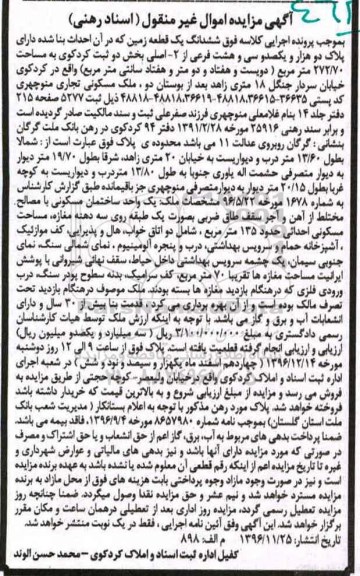 آگهی مزایده اموال غیر منقول ( اسناد رهنی )
بموجب پرونده اجرایی کلاسه فوق ششدانگ یک قطعه زمین که در آن احداث بنا شده دارای
پلاک دو هزار و یکصدو سی و هشت فرعی از ۲- اصلی بخش دو ثبت کردکوی به مساحت
۲۷۲/۷۰ متر مربع ( دویست و هفتاد و دو متر و هفتاد سانتی متر مربع) واقع در کردکوی
خیابان سردار جنگل ۱۸ متری زاهد بعد از بوستان دو ، ملک مسکونی تجاری منوچهری
کد پستی ۳۶۶۳۵-۴۸۸۱۸،۳۶۶۱۵-۴۸۸۱۸،۳۶۶۱۹-۴۸۸۱۸ ذیل ثبت ۵۲۷۷ صفحه ۲۱۵
دفتر جلد ۱۴ بنام غلامعلی منوچهری فرزند صفرعلی ثبت و سند مالکیت صادر گردیده است
و برابر سند رهنی ۲۵۹۱۶ مورخه ۱۳۹۱/۲/۲۸ دفتر ۹۴ کردکوی در رهن بانک ملت گرگان
بنشانی : گرگان روبروی عدالت ۱۱ می باشد محدوده ی پلاک فوق عبارت است از : شمالا
بطول ۱۳/۶۰ متر درب و دیواریست به خیابان ۲۰ متری زاهد، شرقا بطول ۱۹/۷۰ متر دیوار
به دیوار متصرفی حشمت اله یاوری جنوبا به طول ۱۳/۸۰ متردرب و دیواریست به کوچه
غربا بطول ۲۰/۱۵ متر دیوار به دیوارمتصرفی منوچهری جز باقیمانده طبق گزارش کارشناس
به شماره ۱۶۷۸ مورخه ۹۶/۵/۲۲ مشخصات ملک: یک واحد ساختمان مسکونی با مصالح
مختلط از آهن و آجر سقف طاق ضربی بصورت یک طبقه روی سه دهنه مغازه، مساحت
مسکونی احداثی حدود ۱۳۵ متر مربع ، شامل دو اتاق خواب، هال و پذیرایی، کف موزائیک
، آشپزخانه حمام و سرویس بهداشتی، درب و پنجره آلومینیوم ، نمای شمالی سنگ، نمای
جنوبی سیمان، یک چشمه سرویس بهداشتی داخل حیاط، سقف نهائی شیروانی با پوشش
ایرانیت مساحت مغازه ها تقریبا ۷۰ متر مربع، کف سرامیک، بدنه سطوح پودر سنگ، درب
ورودی فلزی که درهنگام بازدید مغازه ها بسته بودند. ملک موصوف درهنگام بازدید تحت
تصرف مالک بوده است و از آن بهره برداری می کرد، قدمت بنا بیش از ۳۰ سال و دارای
انشعابات آب و برق و گاز می باشد با توجه به اینکه ارزش ملک توسط هیات کارشناسان
رسمی دادگستری به مبلغ ۳/۱۰۰/۰۰۰/۰۰۰ ریال ( سه میلیارد و یکصدو میلیون ریال)
ارزیابی و ارزیابی انجام گرفته قطعیت یافته است. پلاک فوق از ساعت ۹ الی ۱۲ روز دوشنبه
مورخه ۱۳۹۶/۱۲/۱۴ ( چهاردهم اسفند ماه یکهزار و سیصد و نود و شش ) در شعبه اجرای
اداره ثبت اسناد و املاک کردکوی واقع درخیابان ولیعصر- کوچه حجتی از طریق مزایده به
فروش می رسد و مزایده از مبلغ ارزیابی شروع و به بالاترین قیمت که خریدار داشته باشد
فروخته خواهد شد. پلاک مورد رهن مذکور با توجه به اعلام بستانکار ( مدیریت شعب بانک
ملت استان گلستان) بموجب نامه شماره ۸۶۵۷۹۸۰ مورخه ۱۳۹۶/۹/۴ فاقد بیمه می باشد.
ضمنا پرداخت بدهی های مربوط به آب، برق، گاز اعم از حق انشعاب و یا حق اشتراک و مصرف
در صورتی که مورد مزایده دارای آنها باشد و نیز بدهی های مالیاتی و عوارض شهرداری و
غیره تا تاریخ مزایده اعم از اینکه رقم قطعی آن معلوم شده یا نشده باشد به عهده برنده مزایده
است و نیز در صورت وجود مازاد وجوه پرداختی بابت هزینه های فوق از محل مازاد به برنده
مزایده مسترد خواهد شد و نیم عشر و حق مزایده نقدا وصول میگردد. ضمنا چنانچه روز
مزایده تعطیل رسمی گردد، مزایده روز اداری بعد از تعطیلی درهمان ساعت و مکان مقرر
برگزار خواهد شد. این آگهی وفق آئین نامه اجرایی ، فقط در یک نوبت منتشر خواهد شد.
تاریخ انتشار: ۱۳۹۶/۱۱/۲۵ م الف: ۸۹۸
کفیل اداره ثبت اسناد و املاک کردکوی – محمد حسن الوند